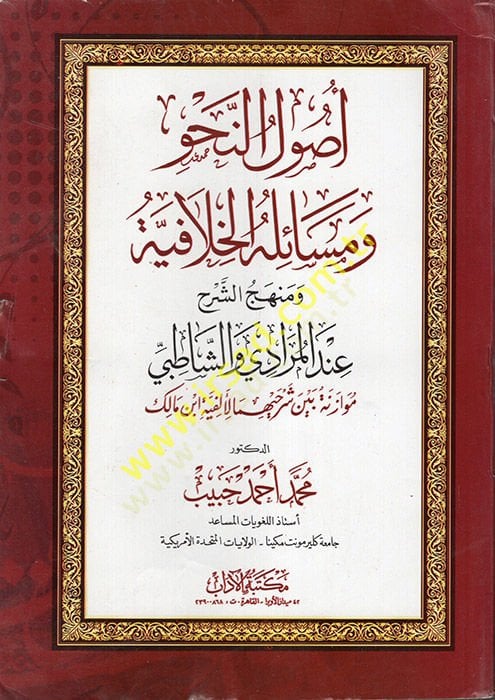 أصول النحو
ومسائله الخلافية
ومنهج الشرح
عند المرادي والشاطبي
موازنة بين شرحيهما لألفية ابن مالك
الدكتور
محمد أحمد حبيب
أستاذ اللغويات المساعد
جامعة كليرمونت مكينا - الولايات المتحدة الأمريكية
مكتبة الآداب
٤٢ ميدان الأوبرا - القاهرة - ت ٢٣٩٠٠٨٦٨